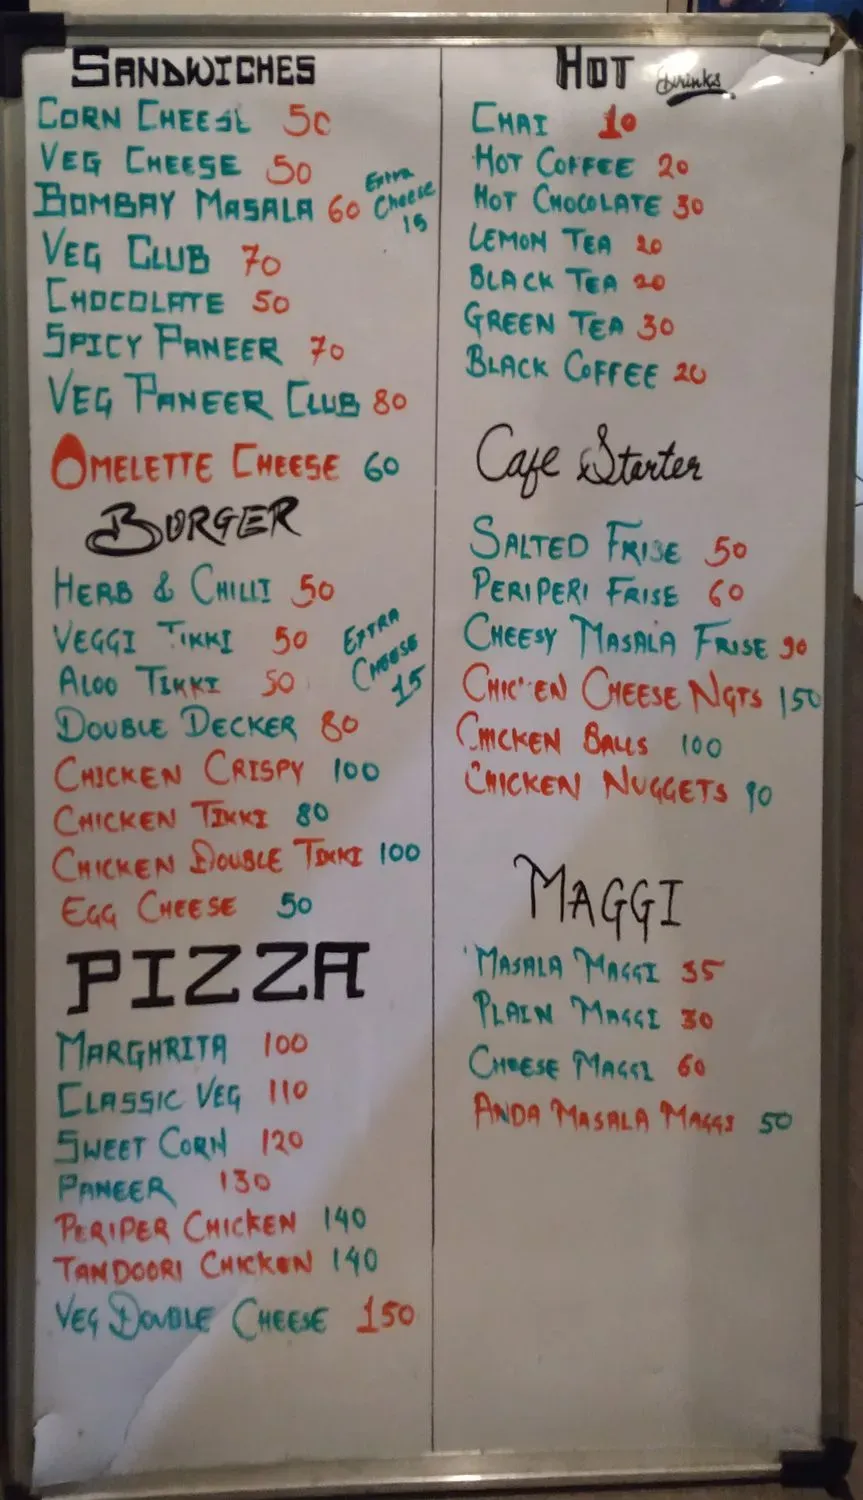 SANDWICHES
CORN CHEESE 50
VEG CHEESE 50
BOMBAY MASALA 60
Extra
Cheese
15
VEG CLUB 70
CHOCOLATE 50
SPICY PANEER 70
VEG PANEER CLUB 80
OMELETTE CHEESE 60
BURGER
HERB & CHILLI 50
VEGGI TIKKI 50
ALOO TIKKI 50
EXTRA
CHEESE
15
DOUBLE DECKER 80
CHICKEN CRISPY 100
CHICKEN TIKKI 80
CHICKEN DOUBLE TIKKI 100
EGG CHEESE 50
PIZZA
MARGHRITA 100
CLASSIC VEG 110
SWEET CORN 120
PANEER 130
PERIPER CHICKEN 140
TANDOORI CHICKEN 140
VEG DOUBLE CHEESE 150
HOT Drinks
CHAI 10
HOT COFFEE 20
HOT CHOCOLATE 30
LEMON TEA 20
BLACK TEA 20
GREEN TEA 30
BLACK COFFEE 20
Cafe Starter
SALTED FRISE 50
PERIPERI FRISE 60
CHEESY MASALA FRISE 90
CHICKEN CHEESE NGTS 150
CHICKEN BALLS 100
CHICKEN NUGGETS 90
MAGGI
MASALA MAGGI 35
PLAIN MAGGI 30
CHEESE MAGGI 60
ANDA MASALA MAGGI 50